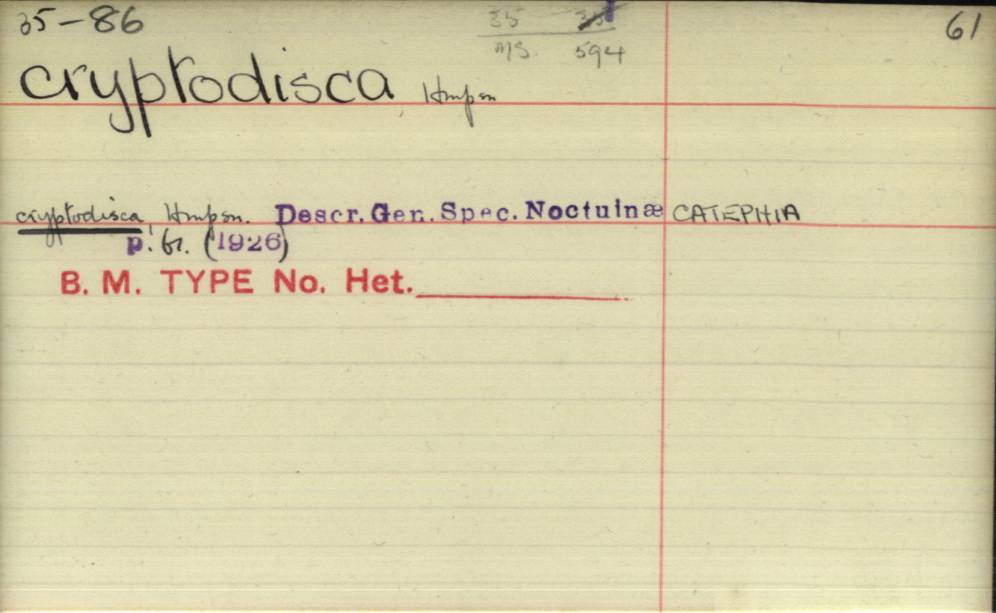 35-86 35 61
MS. 594
cryptodisca Hmpsn
cryptodisca Hmpsn. Descr. Gen. Spec. Noctuinæ CATEPHIA
p. 61. (1926)
B. M. TYPE No. Het.